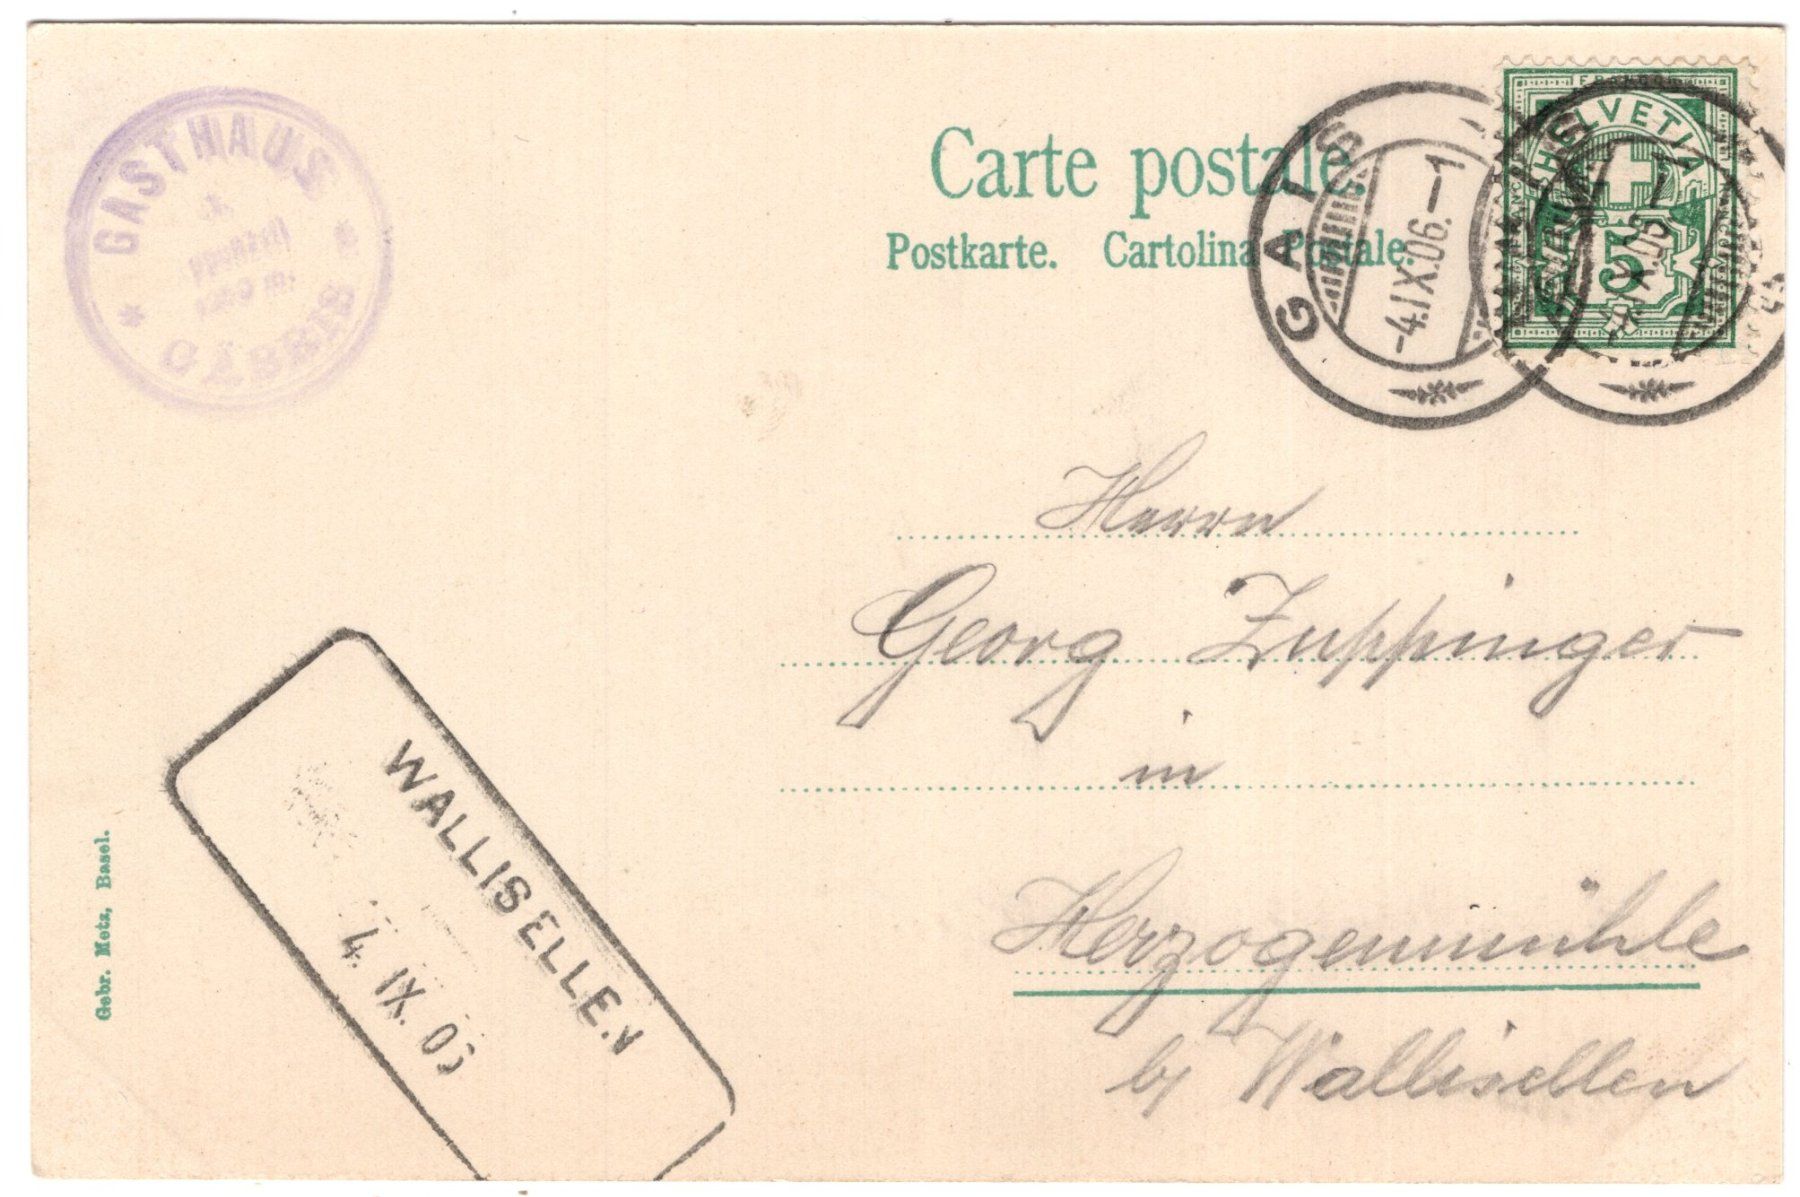 GASTHAUS
GÄBRIS
Carte postale.
Postkarte. Cartolina Postale.
GAIS
-4.IX.06.-1
FRANCO
HELVETIA
5
Herrn
Georg Zuppinger
in
Herzogenmühle
b/ Wallisellen
WALLISELLEN
4. IX. 06
Gebr. Metz, Basel.